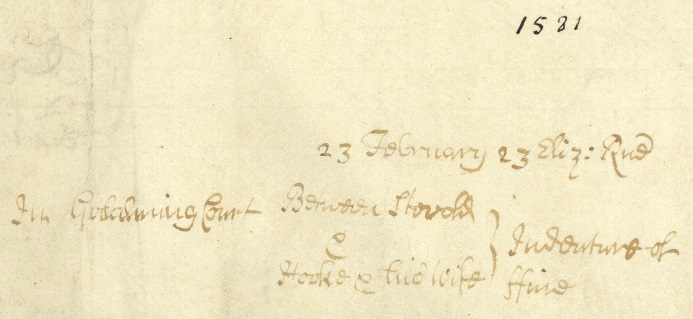 1581
23 February 23 Eliz: Rne
In Godalming Court Between Stovold
&
Hooke & his Wife } Indenture of
ffine